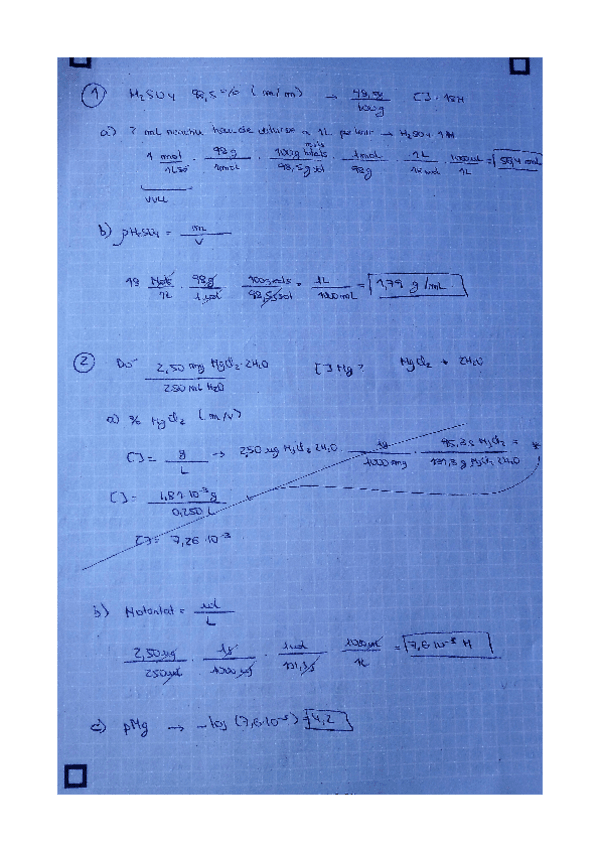 1 H₂SO₄ 98,5 % (m/m) → 98,5g/100g [ ] = 18M
a) ? mL 1L → H₂SO₄ 1M
1 mol/1L · 98g/1mol · 100g/98,5g · 1mol/98g · 1L/18mol · 1000mL/1L = 55,4 mL
b) ρH₂SO₄ = m/V
18 mols/1L · 98g/1mol · 100g/98,5g · 1L/1000mL = 1,79 g/mL
2 2,50 mg MgCl₂·2H₂O / 250 mL H₂O [ ] Mg? MgCl₂ + 2H₂O
a) % MgCl₂ (m/v)
[ ] = g/L → 2,50 mg MgCl₂ 2H₂O · 1g/1000mg · 95,3g MgCl₂/131,3g MgCl₂ 2H₂O = *
[ ] = 1,81·10⁻³g/0,250L
[ ] = 7,26·10⁻³
b) = mol/L
2,50mg/250mL · 1g/1000mg · 1mol/131,3g · 1000mL/1L = 7,6·10⁻⁵ M
c) pMg → -log (7,6·10⁻⁵) = 4,2